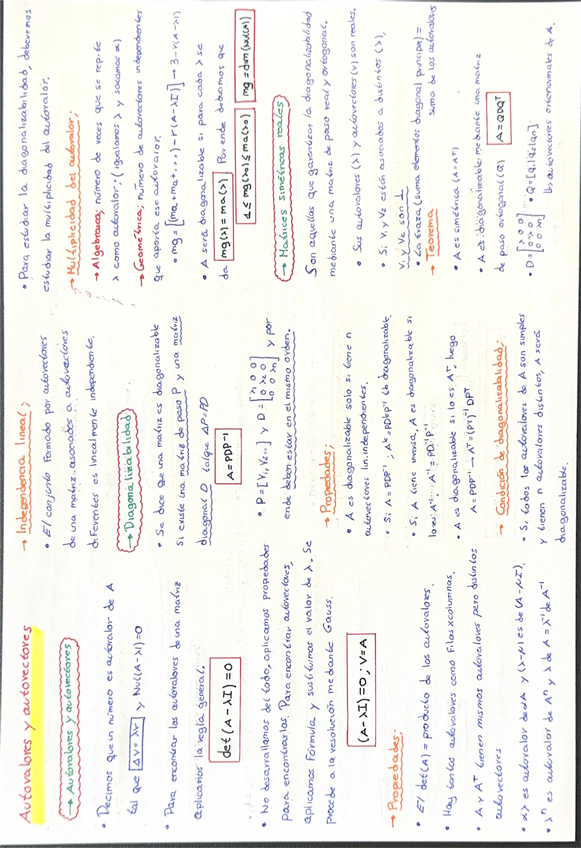 Autovalores y autovectores
→ Autovalores y autovectores
• Decimos que un número es autovalor de A
tal que AV = λv y Nul(A-λI)=0
• Para encontrar los autovalores de una matriz
aplicamos la regla general:
det(A-λI)=0
• No desarrollamos del todo, aplicamos propiedades
para encontrarlas. Para encontrar autovectores,
aplicamos fórmula y sustituimos el valor de λ. Se
procede a la resolución mediante Gauss.
(A-λI)=0; V=A
→ Propiedades:
• El det(A) = producto de los autovalores.
• Hay tantos autovalores como filas x columnas.
• A y Aᵀ tienen mismos autovalores pero distintos
autovectores
• αλ es autovalor de αA y (λ-μ) es de (A-μI).
• λⁿ es autovalor de Aⁿ y λ de A = λ⁻¹ de A⁻¹
→ Independencia lineal;
• El conjunto formado por autovectores
de una matriz asociados a autovectores
diferentes es linealmente independiente.
→ Diagonalizabilidad
• Se dice que una matriz es diagonalizable
si existe una matriz de paso P y una matriz
diagonal D tal que AP=PD
A=PDP⁻¹
• P=[V₁,V₂...] y D=[λ₁ 0 0 / 0 λ₂ 0 / 0 0 λₙ] y por
ende deben estar en el mismo orden.
→ Propiedades;
• A es diagonalizable solo si tiene n
autovectores lin. independientes.
• Si A=PDP⁻¹; Aᵏ=PDᵏP⁻¹ Lo diagonalizable
• Si A tiene inversa, A es diagonalizable si
lo es A⁻¹. A⁻¹=PD⁻¹P⁻¹
• A es diagonalizable si lo es Aᵀ, luego
A=PDP⁻¹ → Aᵀ=(Pᵀ)⁻¹DPᵀ
→ Condición de diagonalizabilidad;
• Si todos los autovalores de A son simples
y tienen n autovalores distintos, A será
diagonalizable.
• Para estudiar la diagonalizabilidad, deberemos
estudiar la multiplicidad del autovalor.
→ Multiplicidad del autovalor;
→ Algebraica; número de veces que se repite
λ como autovalor; (igualamos λ y sacamos α)
→ Geométrica; número de autovectores independientes
que aporta ese autovalor.
• mg = [ma₁+ma₂+...)-r(A-λI)] → 3-r(A-λI)
• A será diagonalizable si para cada λ se
da mg(λ)=ma(λ) Por ende debíamos que
1≤mg(λ₀)≤ma(λ₀) mg=dim(Nul(A))
→ Matrices simétricas reales
Son aquellas que garantizan la diagonalizabilidad
mediante una matriz de paso real y ortogonal.
• Sus autovalores (λ) y autovectores (v) son reales.
• Si V₁ y V₂ están asociados a distintos (λ),
V₁ y V₂ son ⊥
• La traza (suma elementos diagonal principal) =
suma de los autovalores
→ Teorema
• A es simétrica (A=Aᵀ)
• A es diagonalizable mediante una matriz
de paso ortogonal (Q) A=QDQᵀ
• D=[λ 0 0 / 0 λ 0 / 0 0 λ] • Q=[Q₁|Q₂|Qₙ]
los autovectores ortonormales de A.